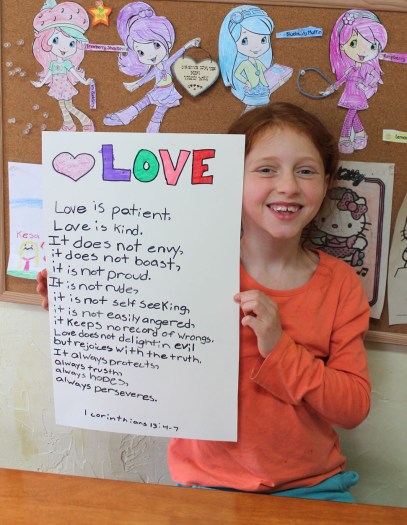 Blueberry Muffin
LOVE
Love is patient,
Love is kind.
It does not envy,
it does not boast,
it is not proud.
It is not rude,
it is not self seeking,
it is not easily angered,
it keeps no record of wrongs.
Love does not delight in evil
but rejoices with the truth.
It always protects,
always trusts,
always hopes,
always perseveres.
1 corinthians 13:4-7